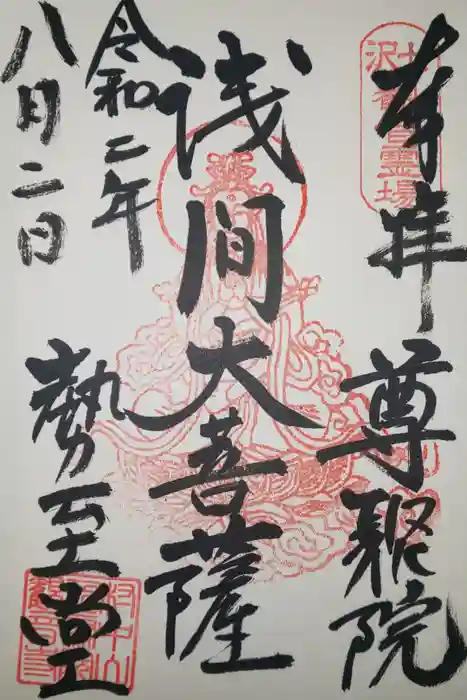 奉拝 尊聚院
霊場
浅間大菩薩
令和二年
八月二日
勢至堂